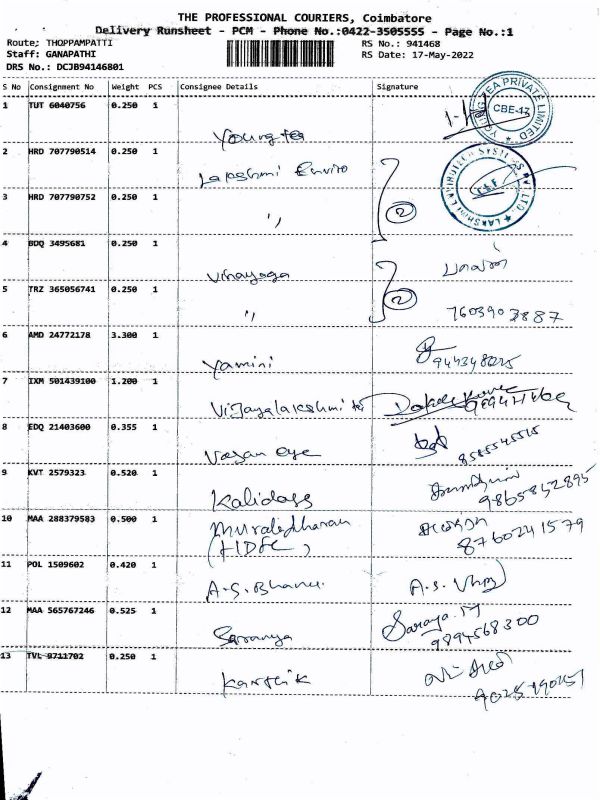 THE PROFESSIONAL COURIERS, Coimbatore
Delivery Runsheet - PCM - Phone No.:0422-3505555 - Page No.:1
Route: THOPPAMPATTI RS No.: 941468
Staff: GANAPATHI RS Date: 17-May-2022
DRS No.: DCJB94146801
S No Consignment No Weight PCS Consignee Details Signature
1 TUT 6040756 0.250 1 Young tea
YOUNG TEA PRIVATE LIMITED CBE-17
2 HRD 707790514 0.250 1 Lakshmi Enviro
LAKSHMI ENVIROTECH SYSTEMS PVT LTD.
3 HRD 707790752 0.250 1 " 2
4 BDQ 3495681 0.250 1 Vinayaga
5 TRZ 365056741 0.250 1 " 2 7603903887
6 AMD 24772178 3.300 1 Yamini
7 IXM 501439100 1.200 1 Vijayalakshmi
8 EDQ 21403600 0.355 1 Vasan eye
9 KVT 2579323 0.520 1 Kalidass 9865852895
10 MAA 288379583 0.500 1 Muraledharan 8760241579
(HDFC)
11 POL 1509602 0.420 1 A.S. Bhanu. A.S.
12 MAA 565767246 0.525 1 Saranya Saranya. M
9894568300
13 TVL 9711702 0.250 1 Karthik